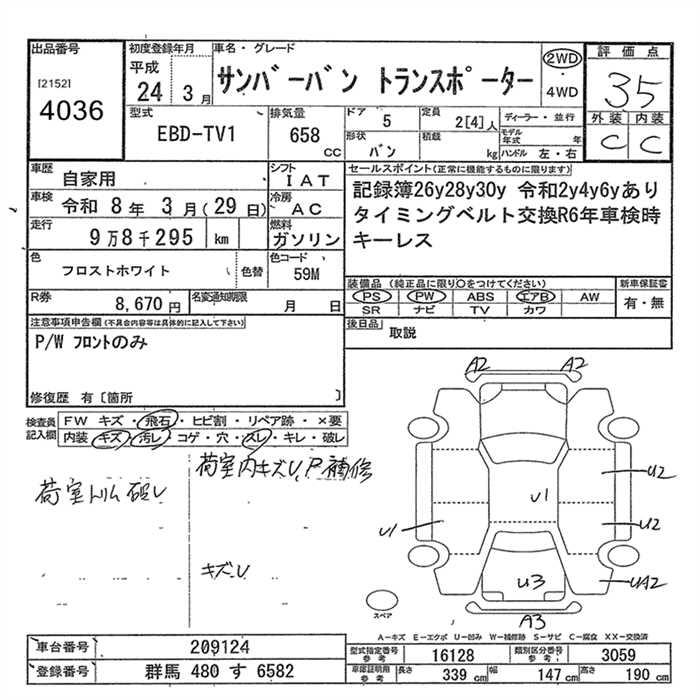 出品番号
[2152]
4036
初度登録年月
平成
24 3月
車名・グレード
サンバーバン トランスポーター
2WD
・
4WD
評価点
3.5
外装 内装
C C
型式
EBD-TV1
排気量
658
cc
ドア
5
定員
2[4]人
ディーラー・並行
形状
バン
積載
kg
モデル年式 年
ハンドル 左・右
車歴
自家用
シフト
IAT
車検
令和 8年 3月(29日)
冷房
AC
走行
9万8千295 km
燃料
ガソリン
色
フロストホワイト
色替
色コード
59M
R券
8,670円
名変通知期限
月 日
セールスポイント(正常に機能するものに限ります)
記録簿26y28y30y 令和2y4y6yあり
タイミングベルト交換R6年車検時
キーレス
装備品(純正品に限り○をつけてください)
PS PW ABS エアB AW
SR ナビ TV カワ
新車保証書
有・無
後日品 取説
注意事項申告欄(不具合内容等は具体的に記入して下さい)
P/W フロントのみ
修復歴 有〔箇所 〕
検査員
記入欄
FW キズ・飛石・ヒビ割・リペア跡・×要
内装 キズ・汚レ・コゲ・穴・スレ・キレ・破レ
荷室内キズU、P補修
荷室トリム破レ
キズU
A2
A2
U2
U1
U1
U2
U3
UA2
A3
スペア
A-キズ E-エクボ U-凹み W-補修跡 S-サビ C-腐食 XX-交換済
車台番号 209124
登録番号 群馬 480 す 6582
型式指定番号
参考
16128
類別区分番号
参考
3059
車庫証明用
参考
長さ 339 cm
幅 147 cm
高さ 190 cm